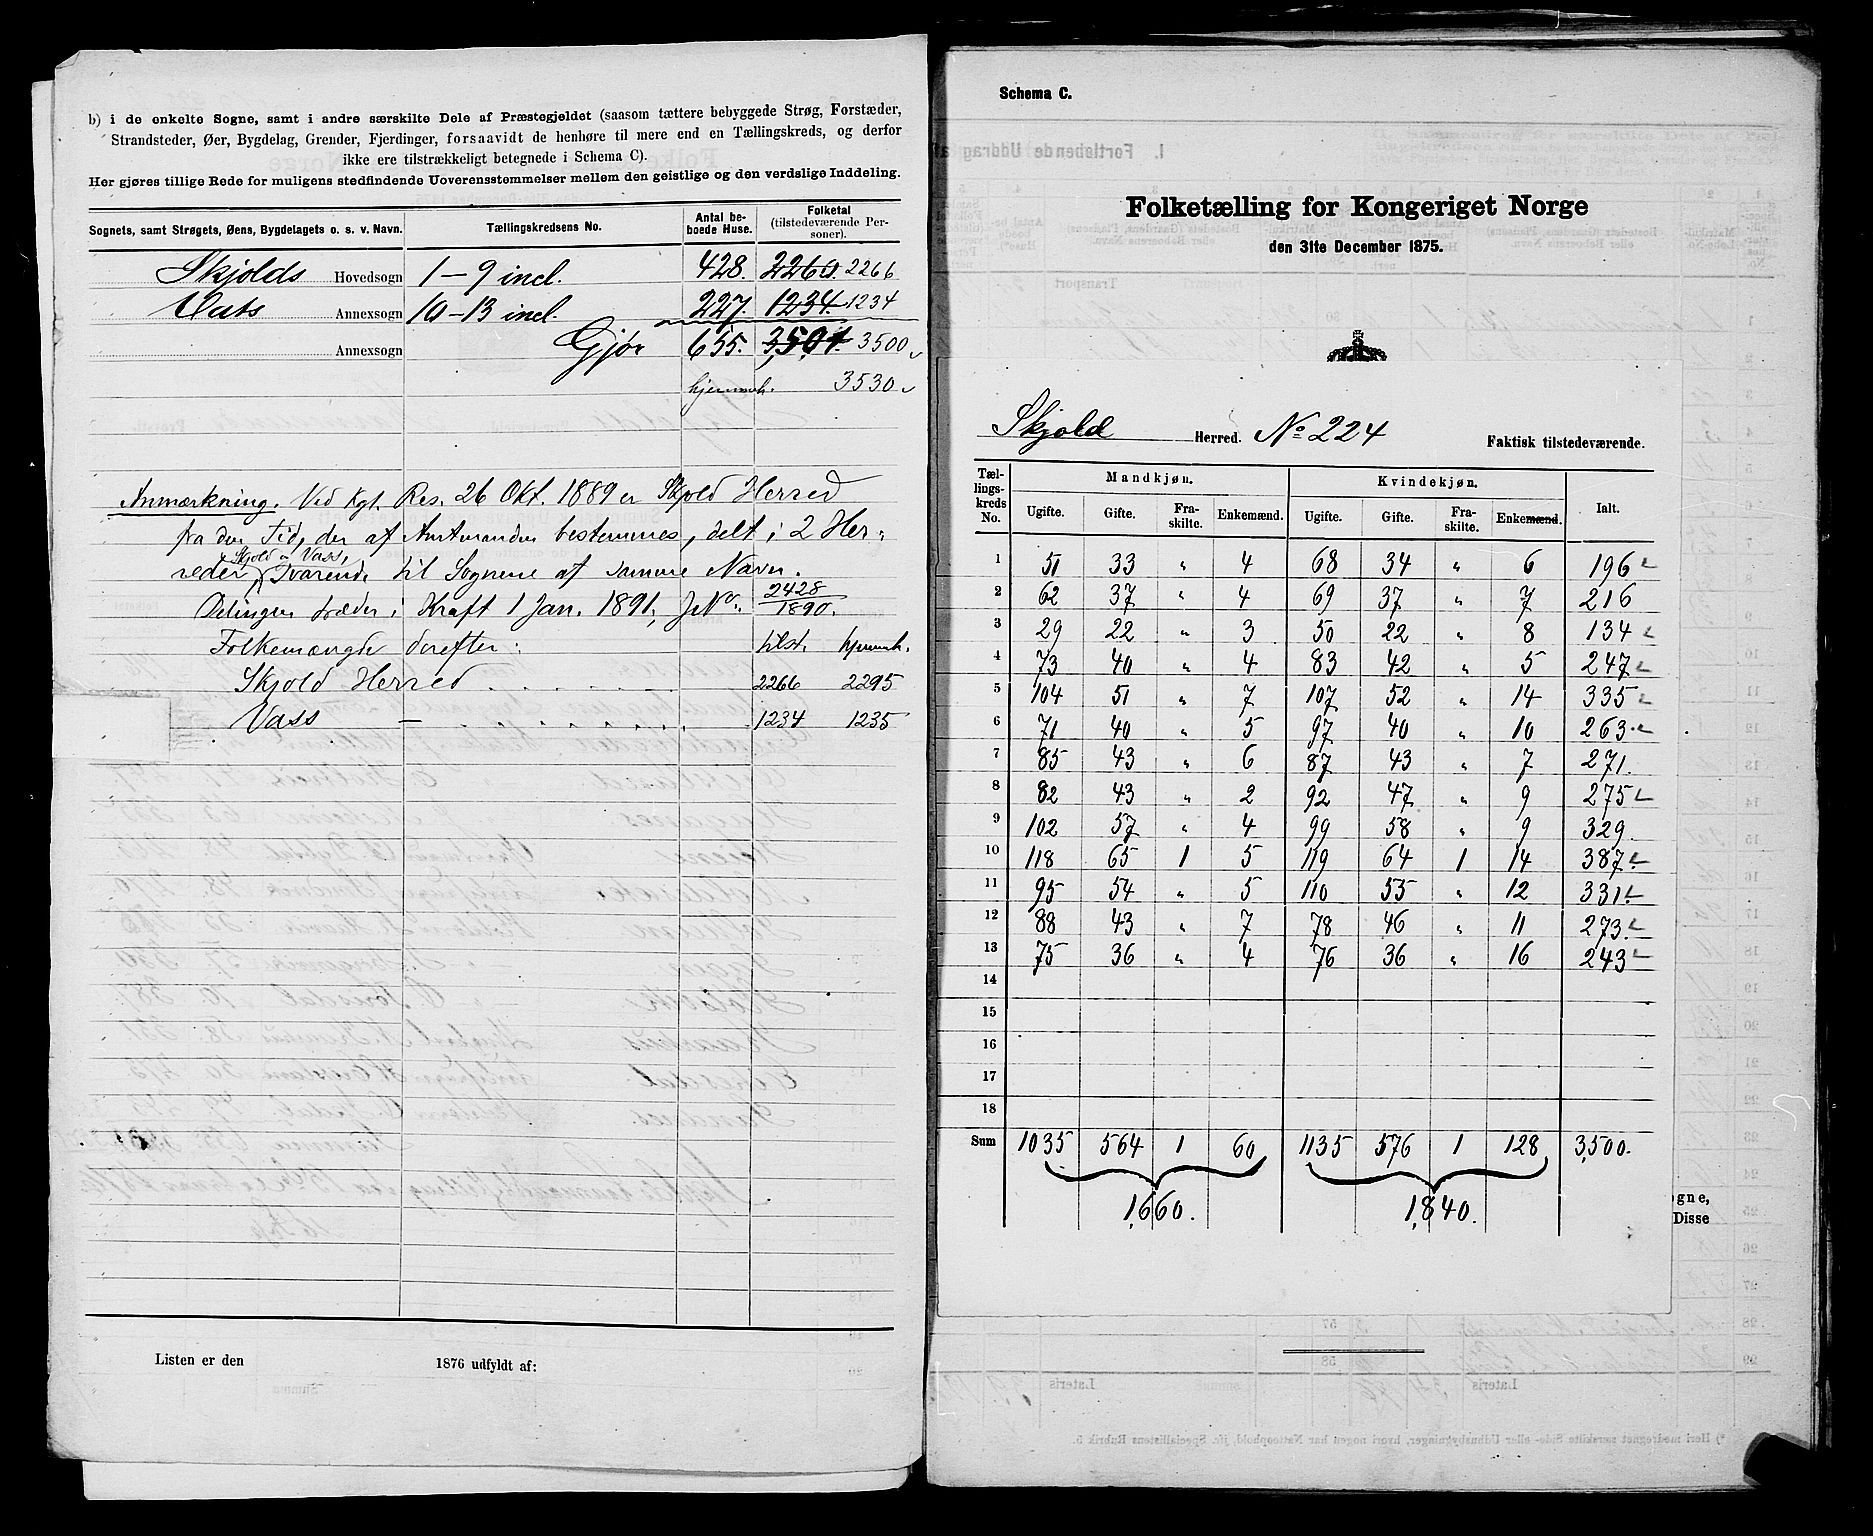 b) i de enkelte Sogne, samt i andre særskilte Dele af Præstegjeldet (saasom tættere bebyggede Strøg, Forstæder,
Strandsteder, Øer, Bygdelag, Grender, Fjerdinger, forsaavidt de henhøre til mere end en Tællingskreds, og derfor
ikke ere tilstrækkeligt betegnede i Schema C).
Her gjøres tillige Rede for muligens stedfindende Uoverensstemmelser mellem den geistlige og den verdslige Inddeling.
Sognets, samt Strøgets, Øens, Bygdelagets o. s. v. Navn. Tællingskredsens No. Antal beboede Huse. Folketal (tilstedeværende Personer).
Skjolds Hovedsogn 1-9 incl. 428. 2260. 2266
Vats Annexsogn 10-13 incl. 227. 1234. 1234
Annexsogn Gjør 655. 3,501. 3500
hjemmeh. 3530
Anmærkning. Ved Kgl. Res. 26 Okt. 1889 er Skjold Herred
fra den Tid, der af Amtmanden bestemmes, delt i 2 Her-
Skjold og Vass,
reder, svarende til Sognene af samme Navn.
Delingen træder i Kraft 1 Jan. 1891, J.No. 2428/1890.
Folkemængde derefter: tilst. hjemmeh.
Skjold Herred 2266 2295
Vass — 1234 1235
Listen er den 1876 udfyldt af:
Schema C.
Folketælling for Kongeriget Norge
den 31te December 1875.
Skjold Herred. No 224 Faktisk tilstedeværende.
Tællingskreds No. Mandkjøn. Kvindekjøn. Ialt.
Ugifte. Gifte. Fraskilte. Enkemænd. Ugifte. Gifte. Fraskilte. Enkemænd.
1 51 33 " 4 68 34 " 6 196
2 62 37 " 4 69 37 " 7 216
3 29 22 " 3 50 22 " 8 134
4 73 40 " 4 83 42 " 5 247
5 104 51 " 7 107 52 " 14 335
6 71 40 " 5 97 40 " 10 263.
7 85 43 " 6 87 43 " 7 271.
8 82 43 " 2 92 47 " 9 275
9 102 57 " 4 99 58 " 9 329.
10 118 65 1 5 119 64 1 14 387.
11 95 54 " 5 110 55 " 12 331.
12 88 43 " 7 78 46 " 11 273.
13 75 36 " 4 76 36 " 16 243
14
15
16
17
18
Sum 1035 564 1 60 1135 576 1 128 3,500.
1,660. 1,840.
ogne,
Disse